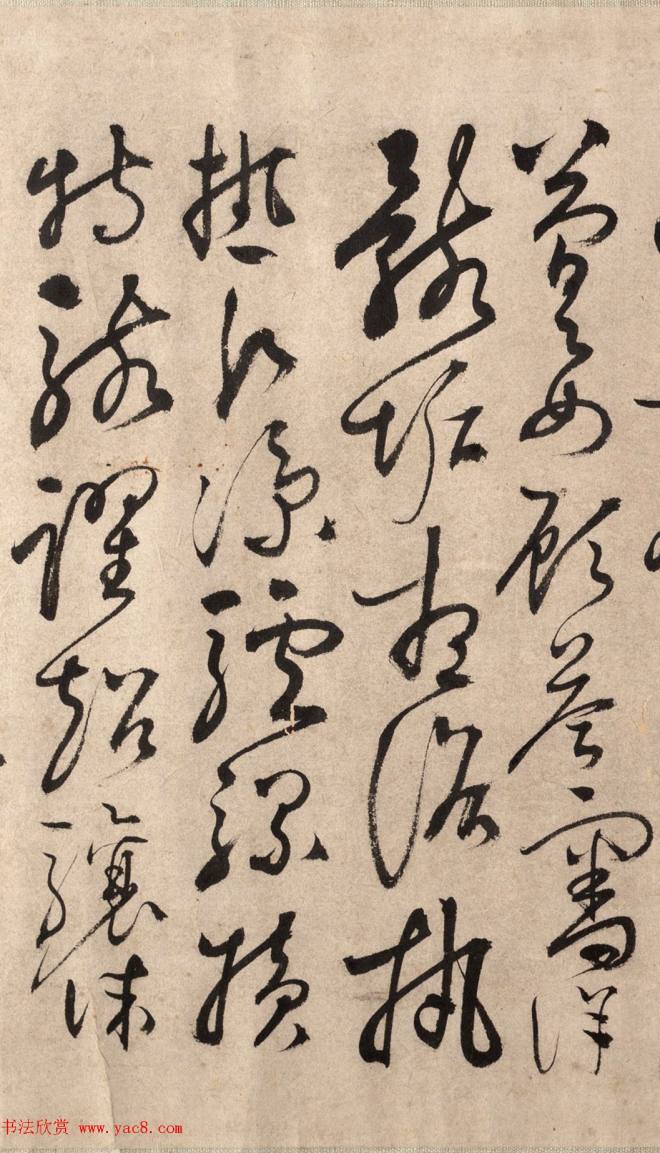 簡要顧答審詳
骸垢想浴執
熱願涼驢騾犢
特駭躍超驤誅
书法欣赏 www.yac8.com